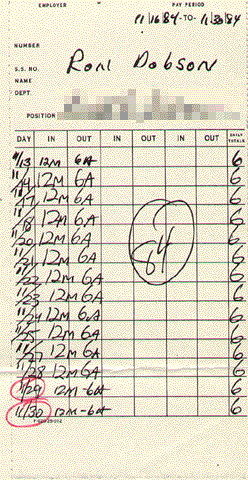 EMPLOYER PAY PERIOD
11/16/84 -TO- 11/30/84
NUMBER
S.S. NO. Roni Dobson
NAME
DEPT.
POSITION
DAY IN OUT IN OUT IN OUT DAILY TOTALS
11/13 12M 6A 6
11/14 12M 6A 6
11/17 12M 6A 6
11/18 12M 6A 6
11/20 12M 6A 6
11/21 12M 6A 6
11/22 12M 6A 6
11/23 12M 6A 6
11/24 12M 6A 6
11/25 12M 6A 6
11/27 12M 6A 6
11/28 12M 6A 6
11/29 12M - 6A 6
11/30 12M - 6A 6
84